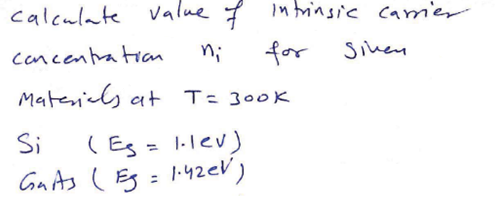 calculate value of intrinsic carrier
concentration ni for given
Materials at T = 300K
Si (Eg = 1.1ev)
GaAs (Eg = 1.42eV)